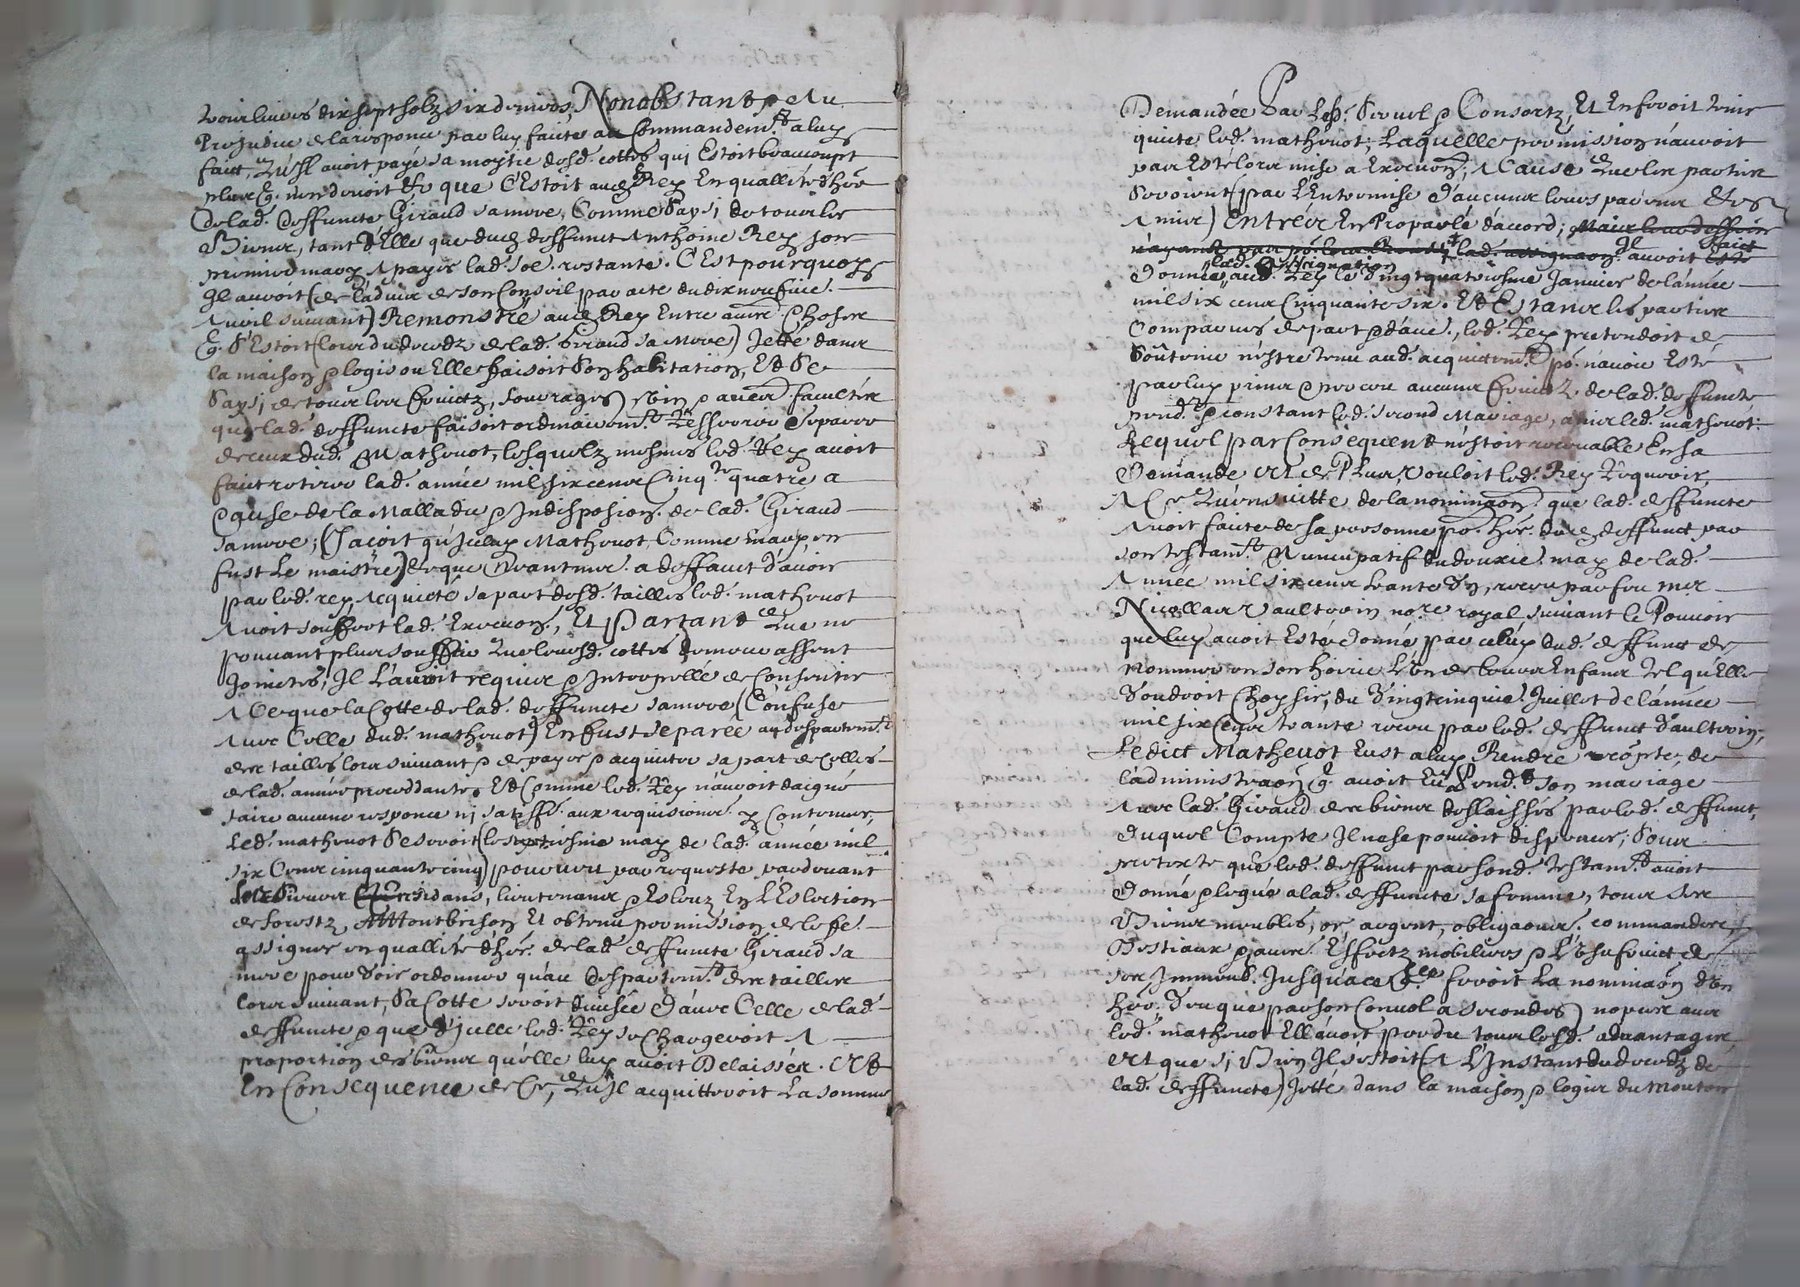 livres dix sept solz six deniers, Nonobstant & Au
Prejudice de la responce par luy faicte au Commandem.t a luy
faict, Qu'Il avoit payé sa moytié desd. cottes qui Estoit beaucoupt
plus q. n'en devoit & que C'Estoit aud. Rey En quallité d'her
De lad. Deffuncte Giraud sa mere, Comme saysi de tous les
Biens, tant d'Elle que dud. deffunct Anthoine Rey son
premier mary A payer lad. so.e restante. C'Est pourquoy
Il avoit (de l'advis de son Conseil par acte du dixneufvie.
Avril suivant) Remonstré aud. Rey Entre au.res Choses
q. s'Estoit (lors du decedz de lad. Giraud sa Mere) Jetté dans
la maison & logis ou Elle faisoit Son habitation, Et Se
Saysi de tous les fruictz, fourages, foin & au.res facultés
que lad. deffuncte faisoit ordinairem.t Resserrer Separer
de ceux dud. Mathevot, lesquelz mesmes led. Rey avoit
faict retirer lad. année mil six cens Cinq.te quatre a
Cause de la Malladie & Indisposion. de lad. Giraud
sa mere; (Jaçoit qu'Iceluy Mathevot, Comme mary en
fust Le maistre) & que Neantmoins a deffaut d'avoir
par led. rey Acquicté sa part desd. tailles led. mathevot
Avoit souffert lad. Execuon., Et Partant Que ne
pouvant plus souffrir Que leursd. cottes demeurassent
Joinctes, Il L'avoit requis & Interpellé de Consentir
A Ce que la Cotte de lad. deffuncte sa mere (Confuse
Avec Celle dud. mathevot) En fust separée au despartem.t
des tailles lors suivant & de payer & acquitter sa part de Celles
de lad. année precedante, Et Comme led. Rey n'avoit daigné
faire aucune responce ni satisffe. aux requisions. y Contenues,
Led. mathevot Se seroit (le sixiesme may de lad. année mil
six Cens cinquante cinq) pourveu par requeste pardevant
les Sieurs Presidans, lieutenans & Esleuz En L'Eslection
de forestz, A Montbrison Et obtenu permission de le fe.
assigner en quallité d'her. de lad. deffuncte Giraud sa
mere pour Voir ordonner qu'au Despartem.t des tailles
lors suivant, Sa Cotte seroit divisée D'avec Celle de lad.
deffuncte & que d'Icelle led. Rey se Chargeroit A
proportion des biens qu'elle luy avoit Delaissés. Et
En Consequence de Ce, Qu'Il acquitteroit La somme
Demandée Par Lesd. & Consortz, Et En feroit tenir
quicte led. mathevot; Laquelle permission n'avoit
pas Esté lors mise a Execuon., A Cause Que les parties
Seroient (par L'Entremise d'aucuns leurs parens &
Amis) Entrées En Proparlé d'accord; Mais
lad. assignaon. Il avoit faict
lad. Assignation
Donner aud. Rey le Vingtquatriesme Janvier de l'année
mil six cens Cinquante six. Et Estant les parties
Comparues de part & d'au.e, led. Rey pretendoit &
Soutenir n'estre tenu aud. acquittem.t po. n'avoir Esté
par luy prins & perceu aucuns fruictz de lad. deffuncte
pend. & constant led. second Mariage, ains led. mathevot.
Lequel par Consequent n'estoit recevable En sa
Demande Et de Plus, Vouloit led. Rey Requerir,
A Ce Qu'ensuitte de la nominaon. que lad. deffuncte
Avoit faicte de sa personne po. her. dud. deffunct par
son testam.t Nuncupatif du douzie. may de lad.
Année mil six cens trante Un, receu par feu me
Nicollas Vaultrin no.re royal, suivant le Pouvoir
que luy avoit Esté donné, par celuy dud. deffunct de
Nommer en son heoir L'Un de leurs Enfans Tel qu'Elle
Voudroit Choysir, du Vingtcinquie. Juillet de l'année
mil six Cens trante receu par led. deffunct Vaultrin,
Ledict Mathevot Eust a luy Rendre compte, de
l'administraon. q. avoit Eu Pend.t Son mariage
Avec lad. Giraud des biens deslaissés par led. deffunct,
Duquel Compte Il ne se pouvoit dispencer, Sous
pretexte que led. deffunct par sond. Testam.t avoit
Donné & legué a lad. deffuncte sa femme, tous ses
Biens meubles, or, argent, obligaons. commandes,
Bestiaux & au.res Effectz mobiliers & L'Usufruict de
ses Immeub. Jusqu'a ce qu'Elle feroit La nominaon. d'Un
her. Veu que par son Convol a Secondes nopces avec
led. mathevot Elle avoit perdu tous lesd. advantages
Et que si Bien Il s'estoit (A L'Instant du decedz de
lad. deffuncte) Jetté dans la maison & logis du mouton